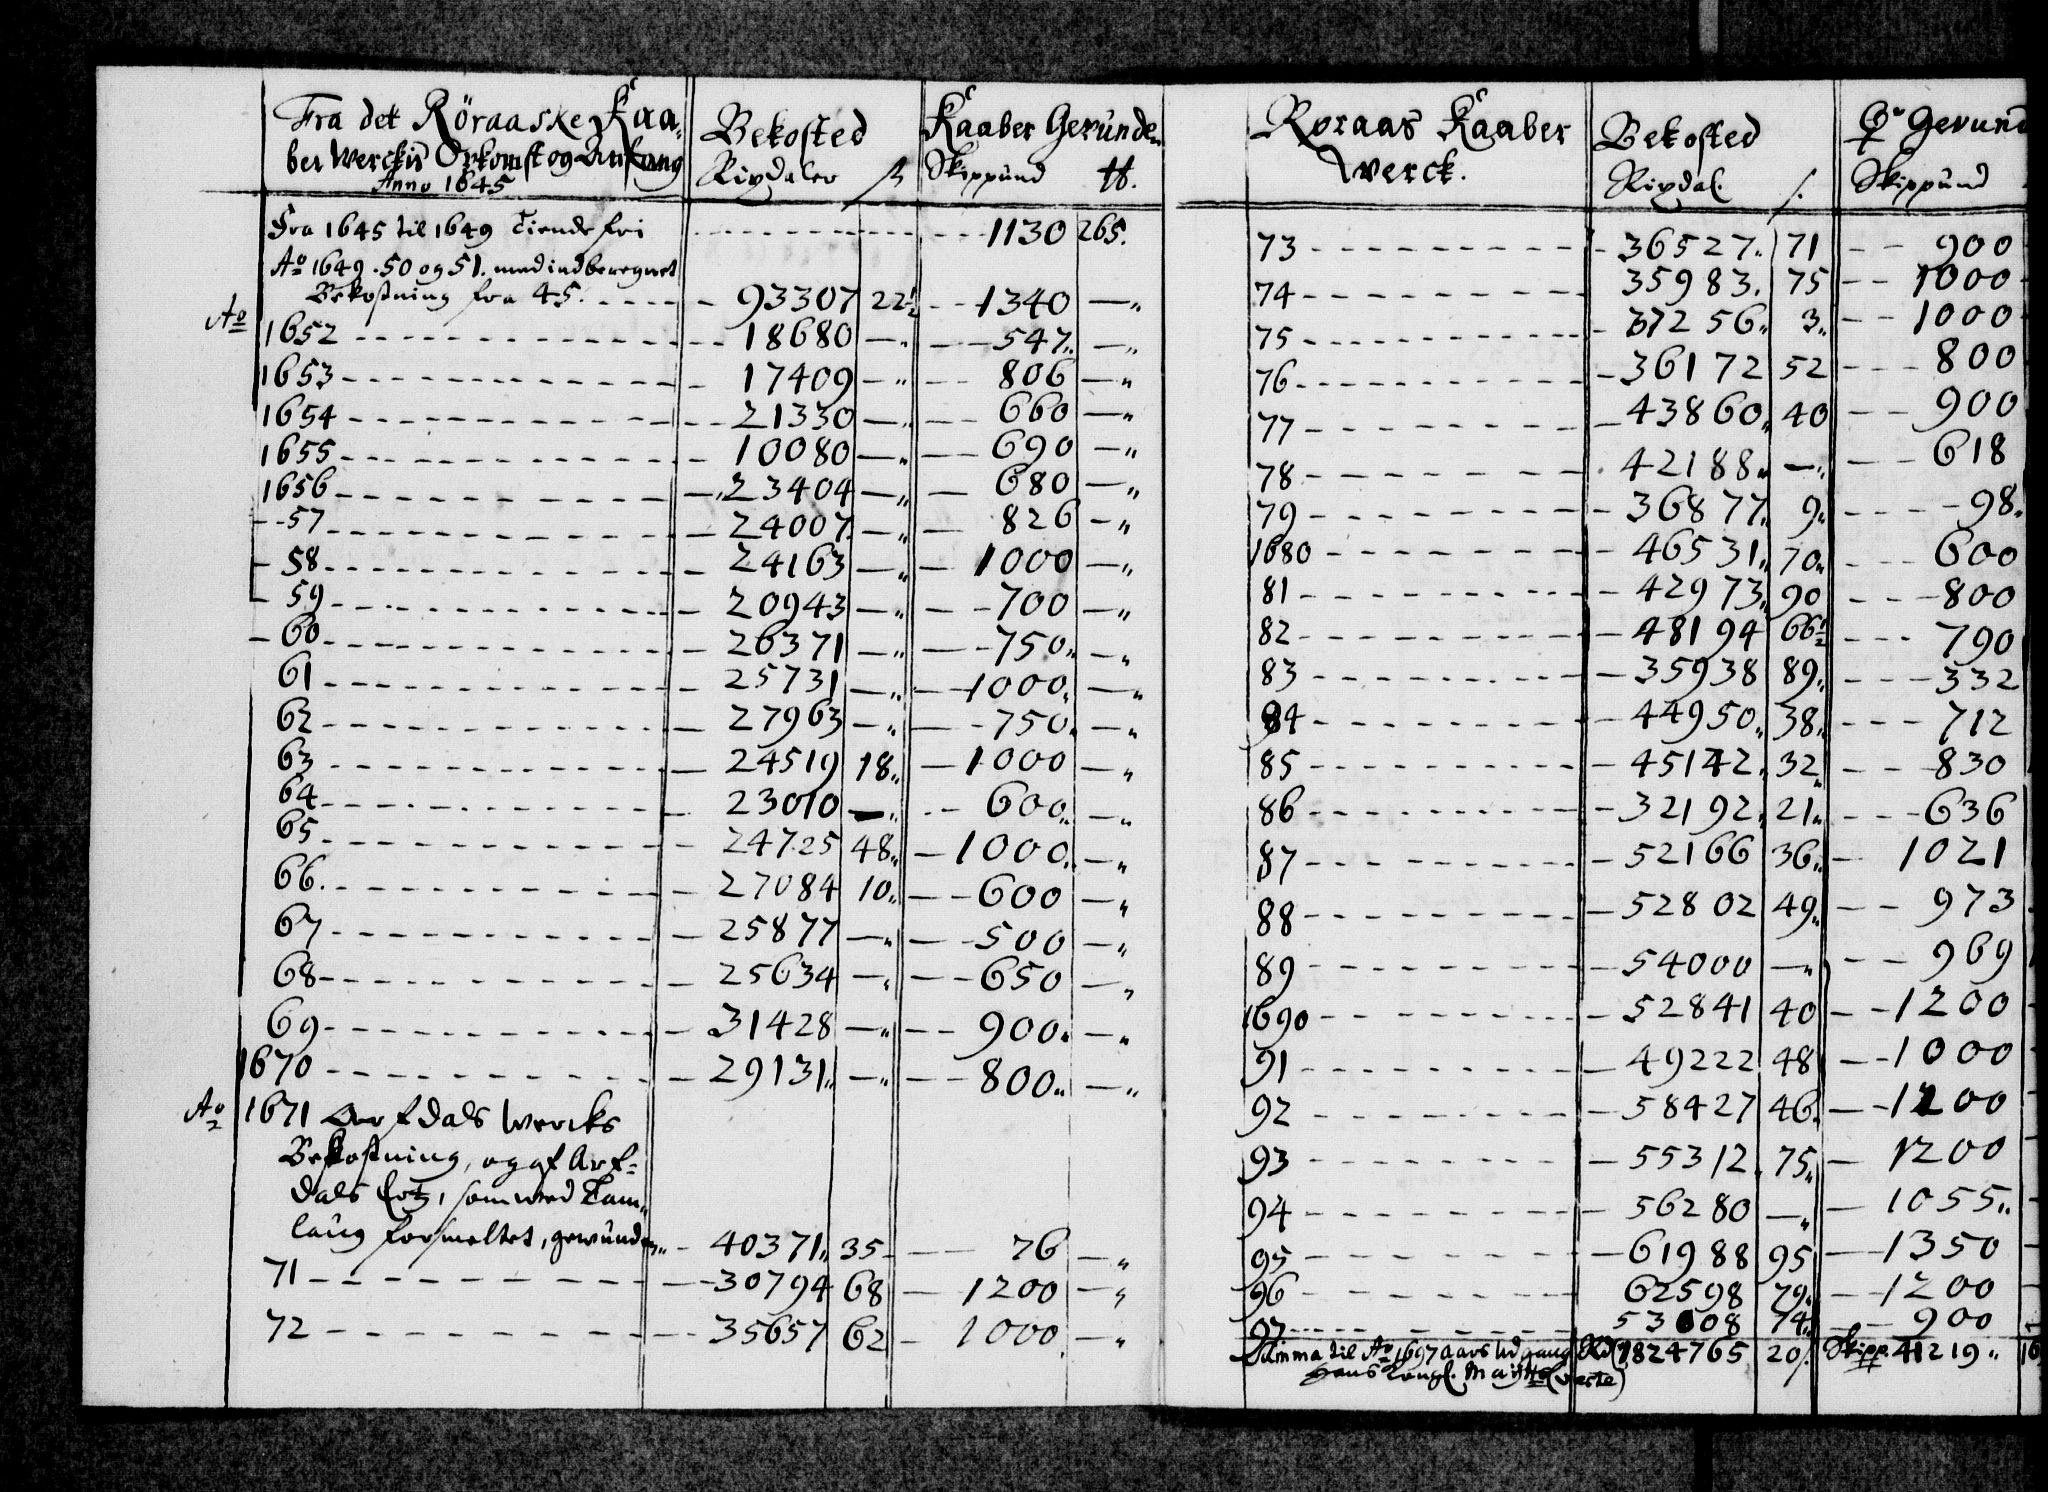 Fra det Röraaske Kaa-
ber Werckis Opkomst og Anfang
Anno 1645
Bekosted
Rixdaler ß
Kaaber Gewunden
Skippund ℔.
Fra 1645 til 1649 Tiende fri 1130 265.
Ao 1649. 50 og 51. med indberegnet
Bekostning fra 45. 93307 22½ 1340 —
Ao
1652 18680 — 547 —
1653 17409 — 806 —
1654 21330 — 660 —
1655 10080 — 690 —
1656 23404 — 680 —
57 24007 — 826 —
58 24163 — 1000 —
59 20943 — 700 —
60 26371 — 750 —
61 25731 — 1000 —
62 27963 — 750 —
63 24519 18 1000 —
64 23010 — 600 —
65 24725 48 1000 —
66. 27084 10 600 —
67 25877 — 500 —
68 25634 — 650 —
69 31428 — 900 —
1670 29131 — 800 —
Ao 1671 Aarfdals Wercks
Bekostning, og af Arf-
dals Ertz, som wed Tam-
laug forsmeltet, gewunden 40371 35 76 —
71 30794 68 1200 —
72 35657 62 1000 —
Roraas Kaaber
Werck.
Bekosted
Rixdal. ß.
Gewund
Skippund
73 36527 71 900
74 35983. 75 1000
75 37256 3 1000
76 36172 52 800
77 43860 40 900
78 42188 — 618
79 36877 9 98
1680 46531 70 600
81 42973 90 800
82 48194 66½ 790
83 35938 89 332
84 44950 38 712
85 45142 32 830
86 32192 21 636
87 52166 36 1021
88 52802 49 973
89 54000 — 969
1690 52841 40 1200
91 49222 48 1000
92 58427 46 1200
93 55312 75 1200
94 56280 — 1055
95 61988 95 1350
96 62598 79 1200
97 53608 74 900
Summa til Ao 1697 aars Udgang Rd 1824765 20 Skipp. 41219 16
hans Kongl. Maÿtts